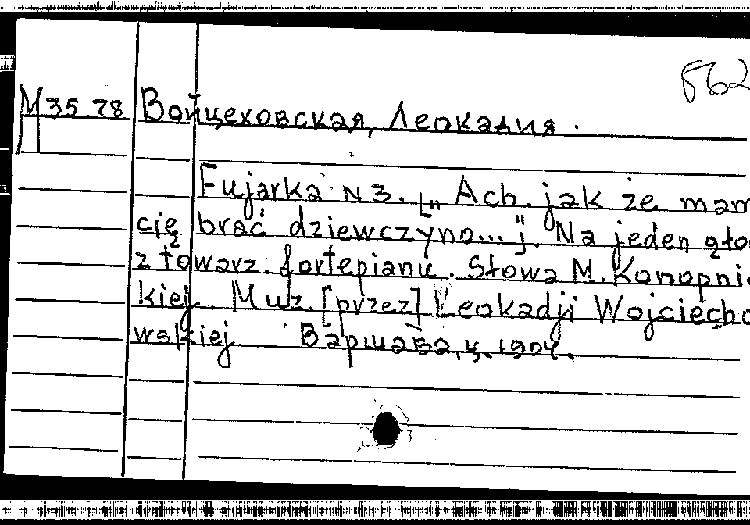 562
М 35 78 Войцеховская, Леокадия.
Fujarka N 3. [„Ach. jak że mam
cię brać dziewczyno..."]. Na jeden gło
z towarz. fortepianu. Słowa M. Konopni
kiej. Muz. [przez] Leokadji Wojciecho
wskiej Варшава, ц. 1904.